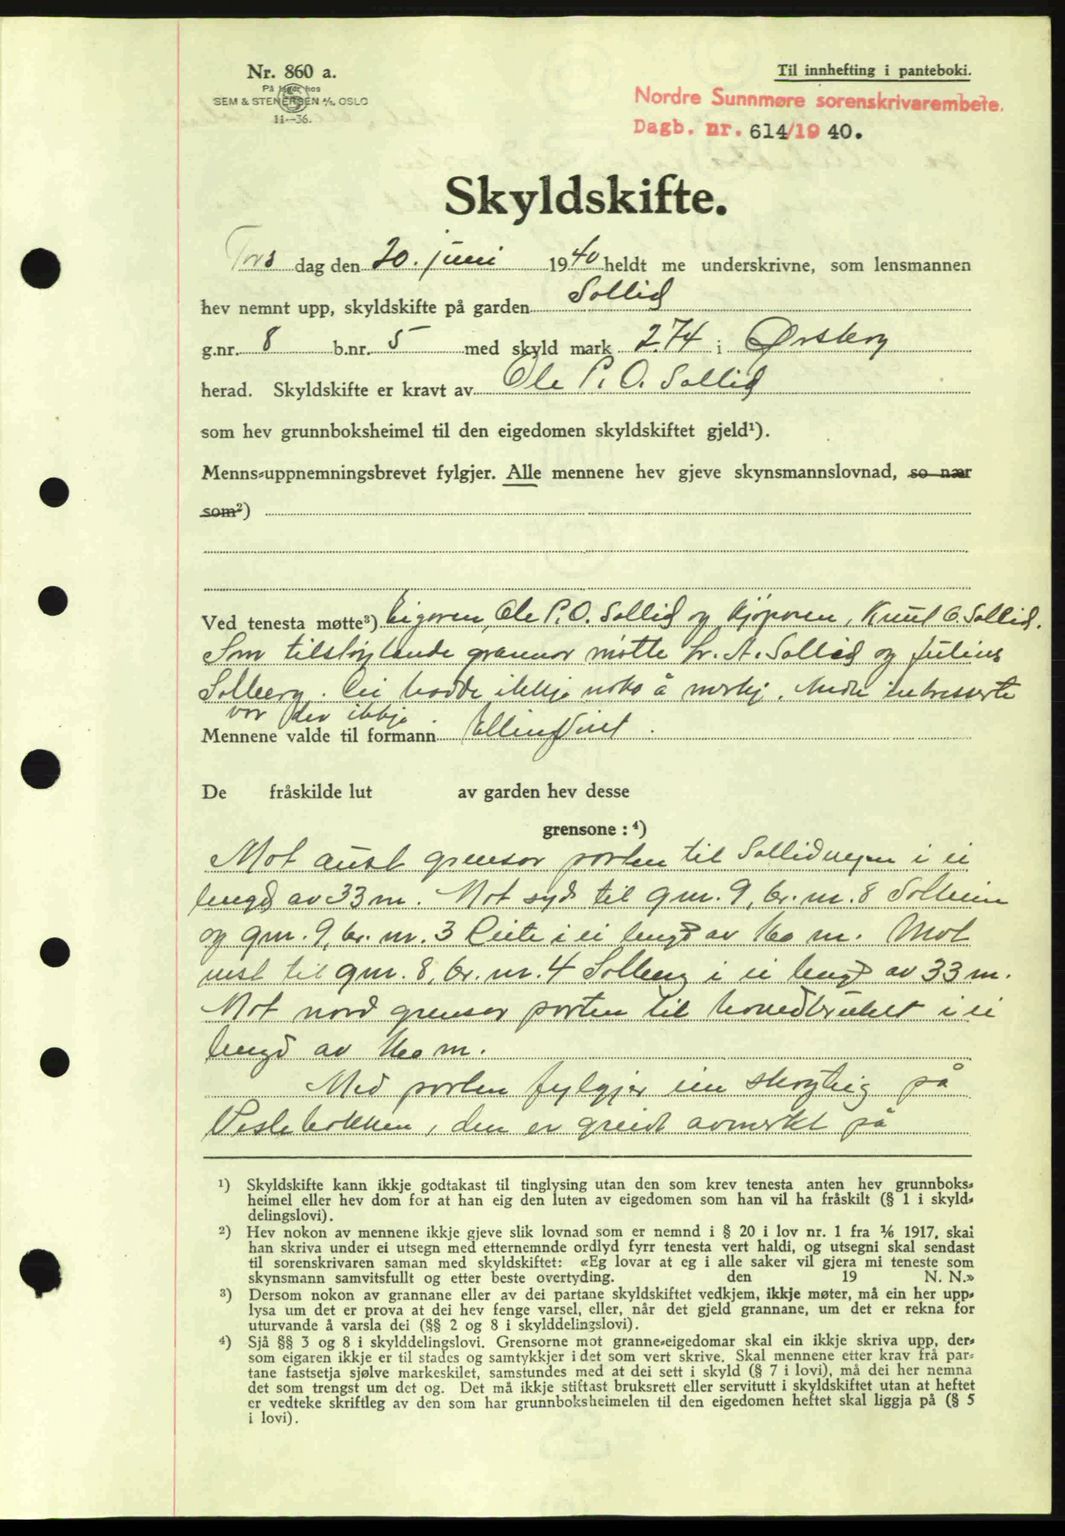 Nr. 860 a.
På lager hos
SEM & STENERSEN A/S, OSLO
11—36.
Til innhefting i panteboki.
Nordre Sunnmøre sorenskrivarembete.
Dagb. nr. 614/1940.
Skyldskifte.
Tors dag den 20. juni 1940 heldt me underskrivne, som lensmannen
hev nemnt upp, skyldskifte på garden Sollid
g.nr. 8 b.nr. 5 med skyld mark 2.74 i Ørskog
herad. Skyldskifte er kravt av Ole P. O. Sollid
som hev grunnboksheimel til den eigedomen skyldskiftet gjeld¹).
Menns-uppnemningsbrevet fylgjer. Alle mennene hev gjeve skynsmannslovnad, so nær
som²)
Ved tenesta møtte³) Eigaren, Ole P. O. Sollid og kjøparen, Knut O. Sollid.
Som tilstøytande grannar møtte Kr. A. Sollid og Julius
Solberg. Dei hadde ikkje noko å merkj. Andre interesserte
var der ikkje.
Mennene valde til formann Elling
De fråskilde lut av garden hev desse
grensone : ⁴)
Mot aust grensar parten til Sollidvegen i ei
lengd av 33 m. Mot syd til gnr. 9, br. nr. 8 Solheim
og gnr. 9, br. nr. 3 Reite i ei lengd av 160 m. Mot
vest til gnr. 8, br. nr. 4 Solberg i ei lengd av 33 m.
Mot nord grensar parten til hovedbruket i ei
lengd av 160 m.
Med parten fylgjer ein skogteig på
Veslebakken, den er greidt avmerkt på
¹) Skyldskifte kann ikkje godtakast til tinglysing utan den som krev tenesta anten hev grunnboks-
heimel eller hev dom for at han eig den luten av eigedomen som han vil ha fråskilt (§ 1 i skyld-
delingslovi).
²) Hev nokon av mennene ikkje gjeve slik lovnad som er nemnd i § 20 i lov nr. 1 fra ⅟₆ 1917, skal
han skriva under ei utsegn med etternemnde ordlyd fyrr tenesta vert haldi, og utsegni skal sendast
til sorenskrivaren saman med skyldskiftet: «Eg lovar at eg i alle saker vil gjera mi teneste som
skynsmann samvitsfullt og etter beste overtyding. den 19 N. N.»
³) Dersom nokon av grannane eller av dei partane skyldskiftet vedkjem, ikkje møter, må ein her upp-
lysa um det er prova at dei hev fenge varsel, eller, når det gjeld grannane, um det er rekna for
uturvande å varsla dei (§§ 2 og 8 i skylddelingslovi).
⁴) Sjå §§ 3 og 8 i skylddelingslovi. Grensorne mot granne-eigedomar skal ein ikkje skriva upp, der-
som eigaren ikkje er til stades og samtykkjer i det som vert skrive. Skal mennene etter krav frå par-
tane fastsetja sjølve markeskilet, samstundes med at dei sett i skyld (§ 7 i lovi), må dei her nemna
det som trengst um det og. Det må ikkje stiftast bruksrett eller servitutt i skyldskiftet utan at heftet
er vedteke skriftleg av den som har grunnboksheimelen til den eigedomen heftet skal liggja på (§ 5
i lovi).